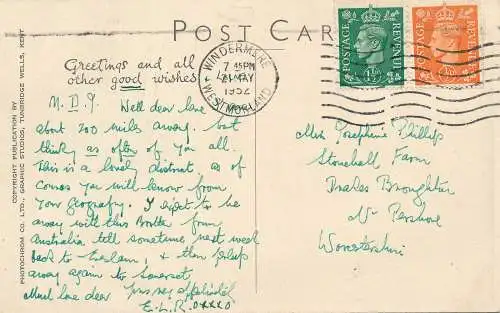 POST CARD
Greetings and all
other good wishes
WINDERMERE
WESTMORLAND
7 45PM
21 MAY
1952
POSTAGE
REVENUE
POSTAGE
REVENUE
M.D.J. Well dear love
about 200 miles away. but
thinky as often of you all.
This is a lovely district, as of
course you will know from
your Geografy. I expect to be
away with this Brother from
Australia till sometime next week
back to & then
away again to Somerset
Much love dear yrs very affectly
E.L.R. oxxxo
Miss Josephine Phillip
Stonehall Farm
Drakes Broughton
Nr Pershore
Worcestershire
COPYRIGHT PUBLICATION BY
PHOTOCHROM CO. LTD., GRAPHIC STUDIOS, TUNBRIDGE WELLS, KENT